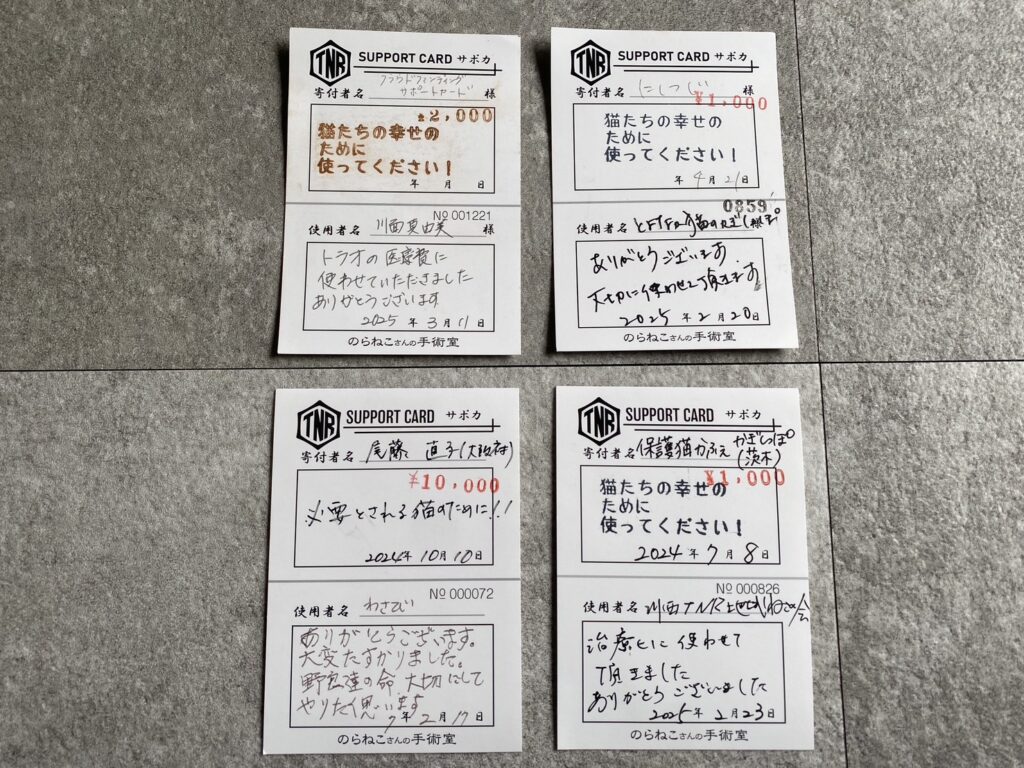 TNR SUPPORT CARD サポカ
クラウドファンディング
サポートカード
寄付者名 様
¥2,000
猫たちの幸せの
ために
使ってください！
年 月 日
№ 001221
使用者名 川面真由美 様
トラオの医療費に
使わせていただきました
ありがとうございます
2025 年 3 月 11 日
のらねこさんの手術室
TNR SUPPORT CARD サポカ
寄付者名 にしつじ 様
¥1,000
猫たちの幸せの
ために
使ってください！
年 4 月 21 日
0859
使用者名
ありがとうございます
大切に使わせて頂きます
2025 年 2 月 20 日
のらねこさんの手術室
TNR SUPPORT CARD サポカ
寄付者名 尾藤 直子(大阪府)
¥10,000
必要とされる猫のために!!
2024年 10 月 10 日
№ 000072
使用者名 わさび
ありがとうございます。
大変たすかりました。
野良達の命 大切にして
やりたく思います
7 年 2 月 17 日
のらねこさんの手術室
TNR SUPPORT CARD サポカ
かぎしっぽ
寄付者名 保護猫カふぇ (茨木)
¥1,000
猫たちの幸せの
ために
使ってください！
2024 年 7 月 8 日
№ 000826
使用者名 川西TNR
治療ヒに使わせて
頂きました
ありがとうございました
2025 年 2 月 23 日
のらねこさんの手術室